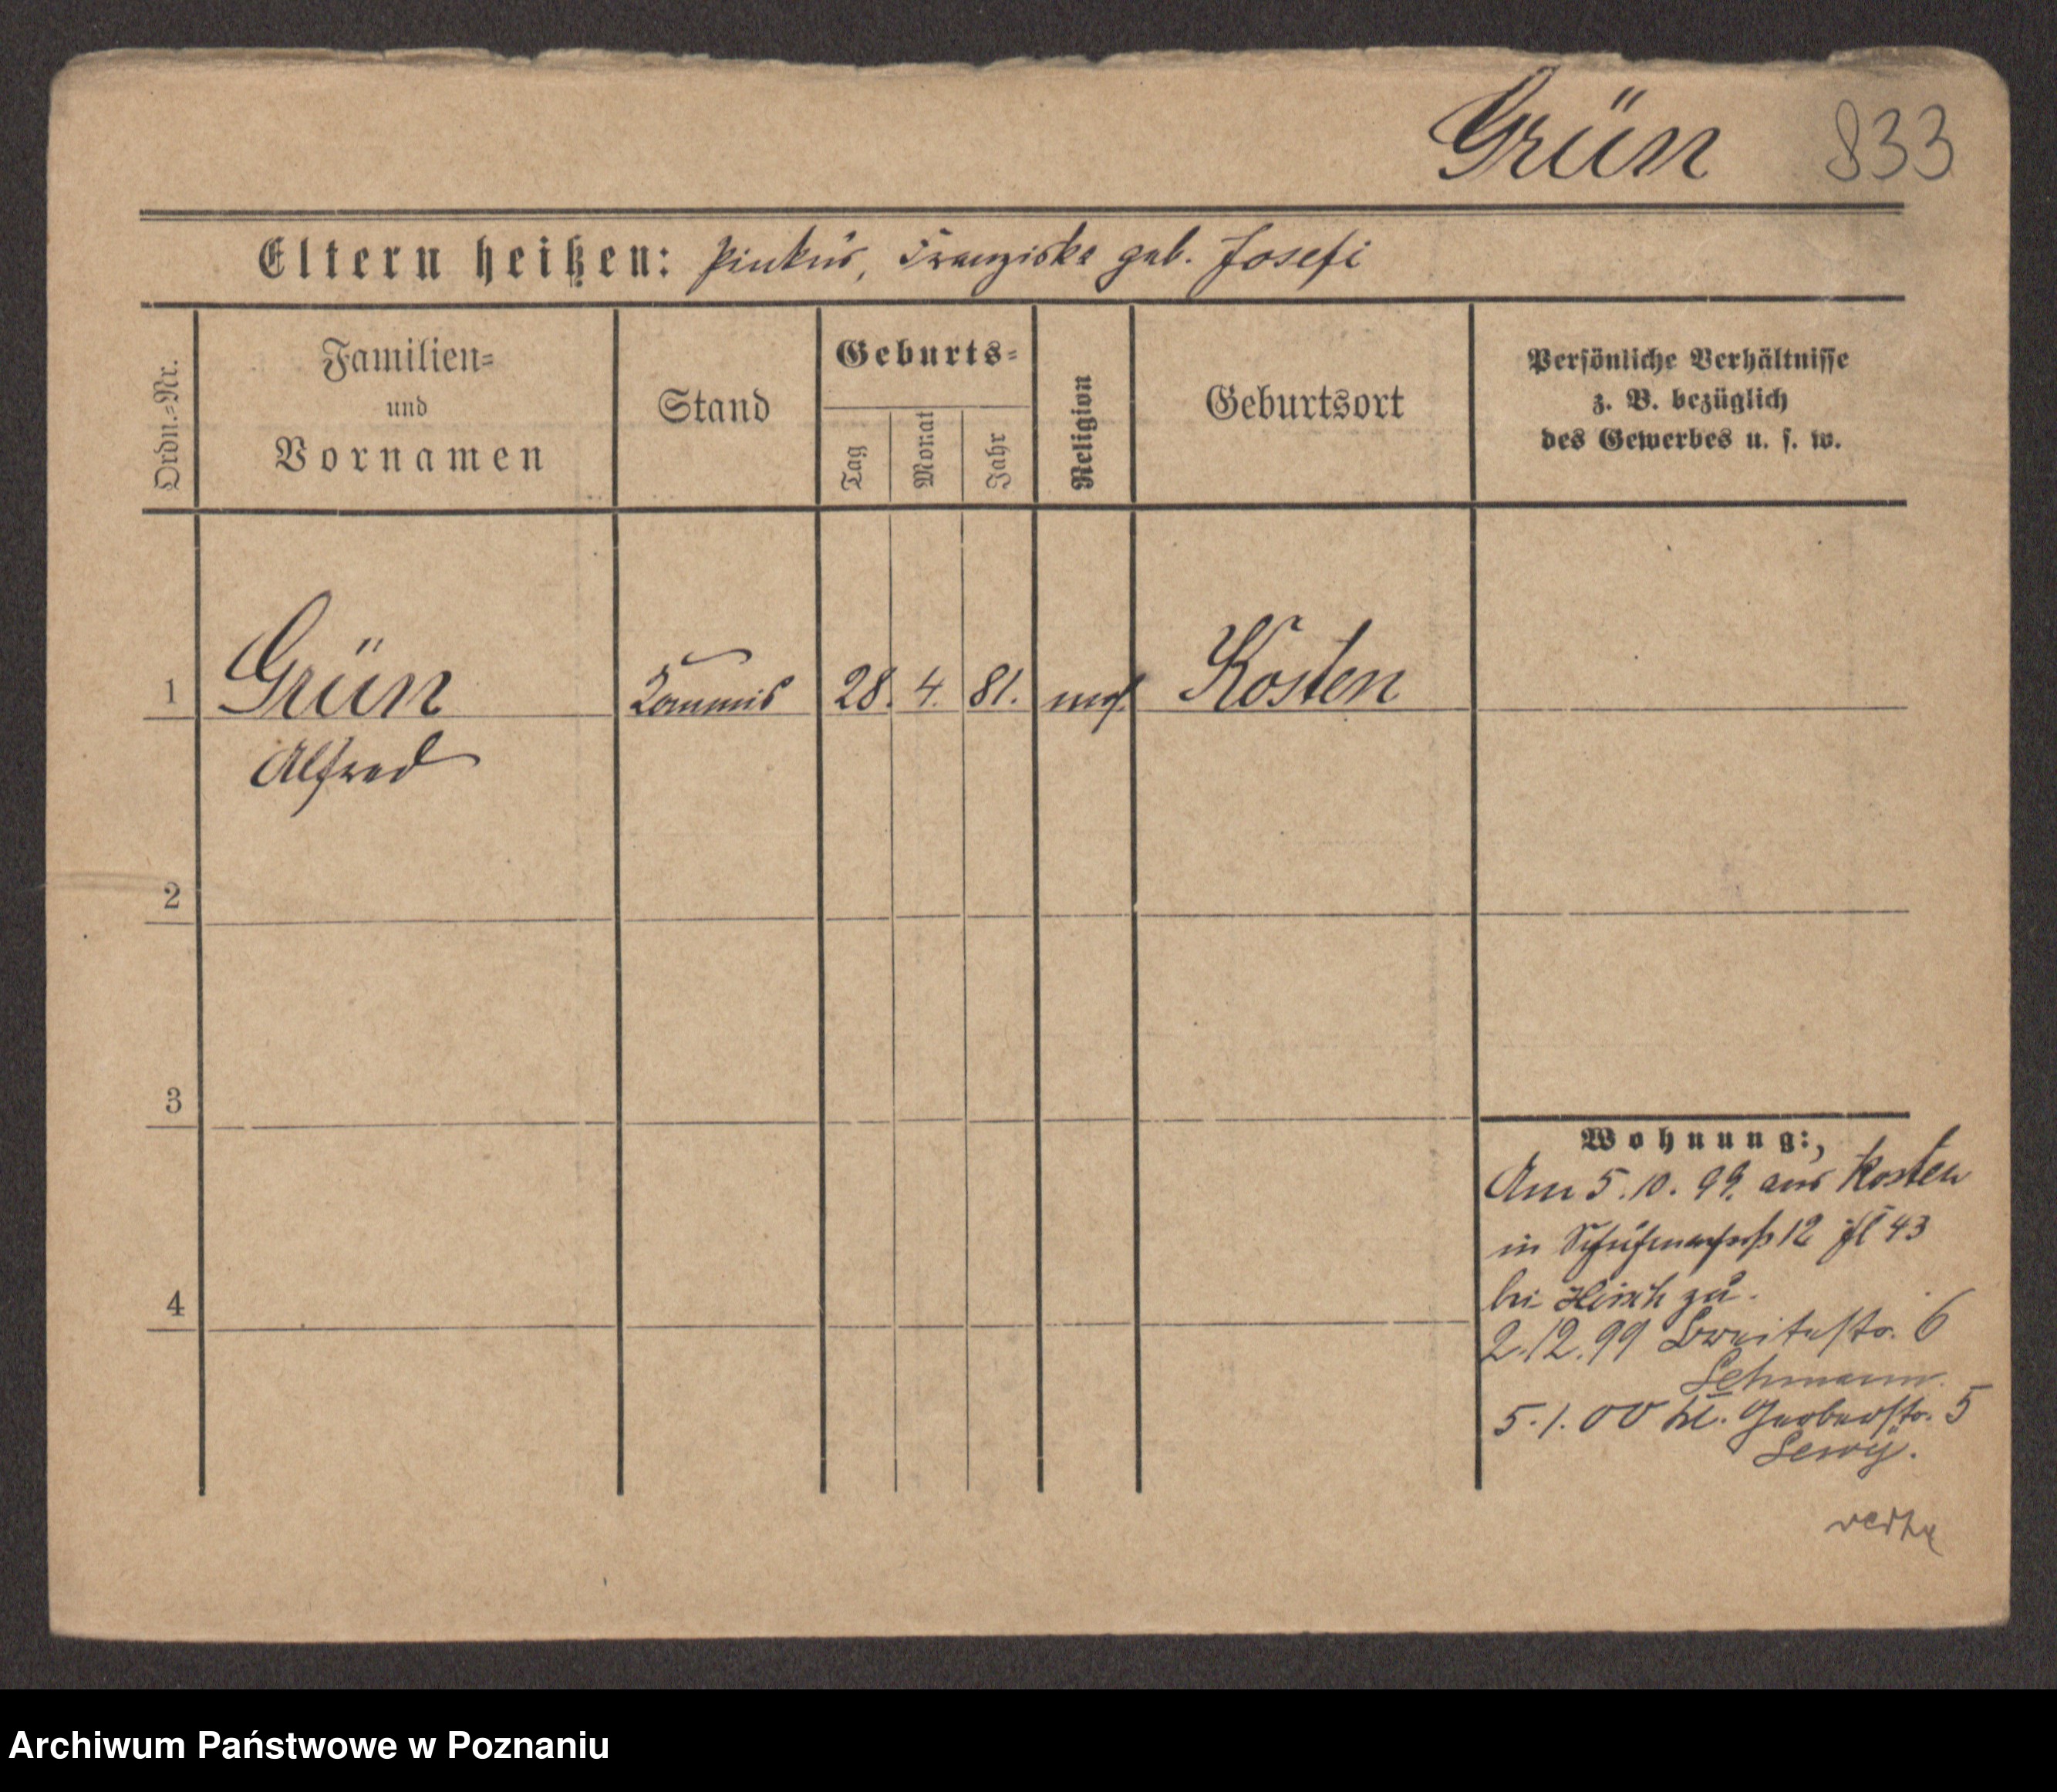 Grün 833
Eltern heißen: Pinkus, Franziska geb. Josefi
Ordn.=Nr.
Familien=
und
Vornamen
Stand
Geburts=
Tag
Monat
Jahr
Religion
Geburtsort
Persönliche Verhältnisse
z. B. bezüglich
des Gewerbes u. s. w.
1 Grün Kommis 28. 4. 81. mos. Kosten
Alfred
2
3
Wohnung:
Am 5.10.99. aus Kosten
in 12 43
bei Hirsch zu.
4
2.12.99 Breitestr. 6
Lehmann.
5.1.00 kl. Gerberstr. 5
Lewÿ.
Archiwum Państwowe w Poznaniu